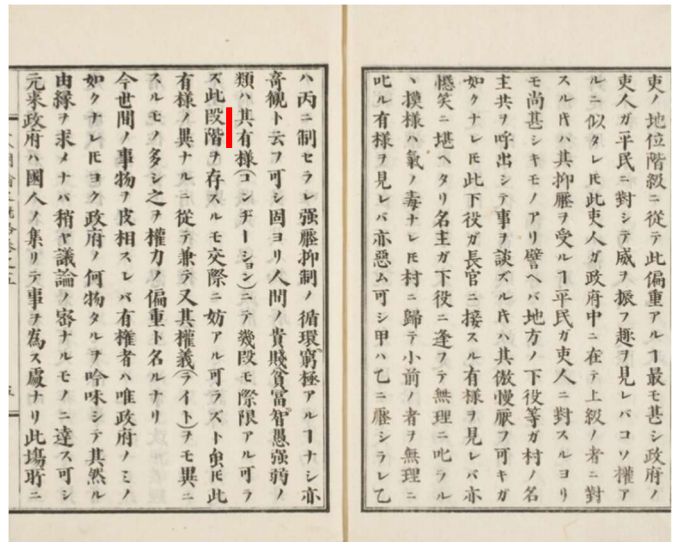 吏ノ地位階級ニ從テ此偏重アルヿ最モ甚シ政府ノ
吏人ガ平民ニ對シテ威ヲ振フ趣ヲ見レバコソ權ア
ルニ似タレ𪜈此吏人ガ政府中ニ在テ上級ノ者ニ對
スル𪜈ハ其抑壓ヲ受ルヿ平民ガ吏人ニ對スルヨリ
モ尚甚シキモノアリ譬ヘバ地方ノ下役等ガ村ノ名
主共ヲ呼出シテ事ヲ談ズル𪜈ハ其傲慢厭フ可キガ
如クナレ𪜈此下役ガ長官ニ接スル有樣ヲ見レバ亦
愍笑ニ堪ヘタリ名主ガ下役ニ逢フテ無理ニ叱ラル
ヽ模樣ハ氣ノ毒ナレ𪜈村ニ歸テ小前ノ者ヲ無理ニ
叱ル有樣ヲ見レバ亦惡ム可シ甲ハ乙ニ壓シラレ乙
ハ丙ニ制セラレ强壓抑制ノ循環窮極アルヿナシ亦
奇觀ト云フ可シ固ヨリ人間ノ貴賤貧富智愚强弱ノ
類ハ其有樣(コンヂーション)ニテ幾段モ際限アル可ラ
ズ此段階ヲ存スルモ交際ニ妨アル可ラズト雖𪜈此
有樣ノ異ナルニ從テ兼テ又其權義(ライト)ヲモ異ニ
スルモノ多シ之ヲ權力ノ偏重ト名ルナリ
今世間ノ事物ヲ皮相スレバ有權者ハ唯政府ノミノ
如クナレ𪜈ヨク政府ノ何物タルヲ吟味シテ其然ル
由緣ヲ求メナバ稍ヤ議論ノ密ナルモノニ達ス可シ
元來政府ハ國人ノ集リテ事ヲ爲ス處ナリ此塲所ニ